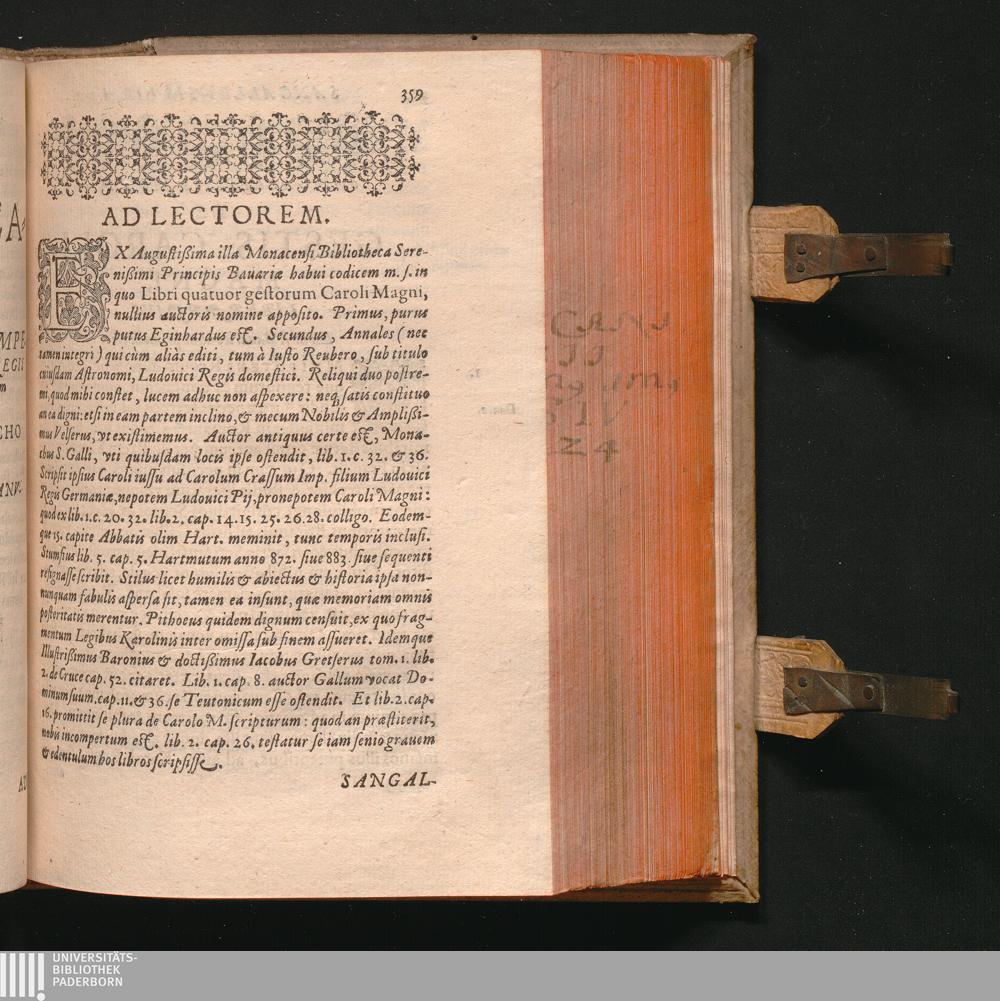 359
AD LECTOREM.
EX Augustißima illa Monacensi Bibliotheca Sere-
nißimi Principis Bauariæ habui codicem m. s. in
quo Libri quatuor gestorum Caroli Magni,
nullius auctoris nomine apposito. Primus, purus
putus Eginhardus est. Secundus, Annales (nec
tamen integri) qui cùm aliàs editi, tum à Iusto Reubero, sub titulo
cuiusdam Astronomi, Ludouici Regis domestici. Reliqui duo postre-
mi, quod mihi constet, lucem adhuc non aspexere: neq; satis constituo
an ea digni: etsi in eam partem inclino, & mecum Nobilis & Amplißi-
mus Velserus, vt existimemus. Auctor antiquus certe est, Mona-
chus S. Galli, vti quibusdam locis ipse ostendit, lib. 1. c. 32. & 36.
Scripsit ipsius Caroli iussu ad Carolum Crassum Imp. filium Ludouici
Regis Germaniæ, nepotem Ludouici Pij, pronepotem Caroli Magni:
quod ex lib. 1. c. 20. 32. lib. 2. cap. 14. 15. 25. 26. 28. colligo. Eodem-
que 15. capite Abbatis olim Hart. meminit, tunc temporis inclusi.
Stumfius lib. 5. cap. 5. Hartmutum anno 872. siue 883. siue sequenti
resignasse scribit. Stilus licet humilis & abiectus & historia ipsa non-
nunquam fabulis aspersa sit, tamen ea insunt, quæ memoriam omnis
posteritatis merentur. Pithoeus quidem dignum censuit, ex quo frag-
mentum Legibus Karolinis inter omissa sub finem assueret. Idemque
Illustrißimus Baronius & doctißimus Iacobus Gretserus tom. 1. lib.
2. de Cruce cap. 52. citaret. Lib. 1. cap. 8. auctor Gallum vocat Do-
minum suum, cap. 11. & 36. se Teutonicum esse ostendit. Et lib. 2. cap.
16. promittit se plura de Carolo M. scripturum: quod an præstiterit,
nobis incompertum est. lib. 2. cap. 26. testatur se iam senio grauem
& edentulum hos libros scripsisse.
SANGAL-
UNIVERSITÄTS-
BIBLIOTHEK
PADERBORN